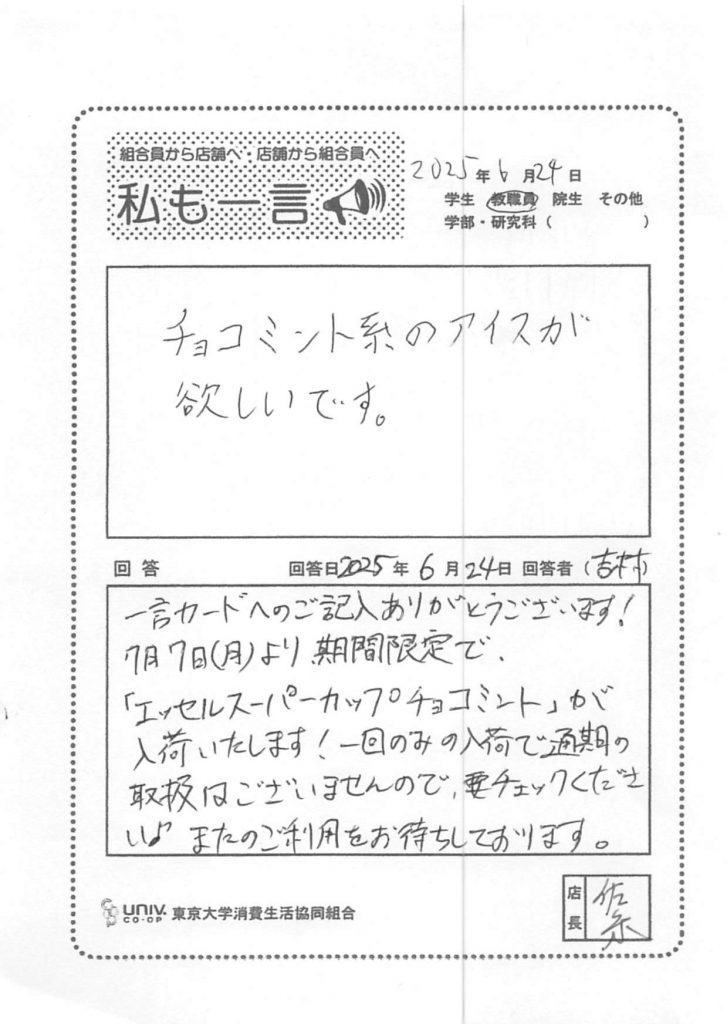 組合員から店舗へ・店舗から組合員へ
私も一言
2025年6月24日
学生 教職員 院生 その他
学部・研究科（ ）
チョコミント系のアイスが
欲しいです。
回答 回答日2025年6月24日 回答者（吉村）
一言カードへのご記入ありがとうございます！
7月7日(月)より期間限定で、
「エッセルスーパーカップチョコミント」が
入荷いたします！一回のみの入荷で通期の
取扱はございませんので、要チェックくださ
い♪ またのご利用をお待ちしております。
UNIV. CO-OP 東京大学消費生活協同組合
店長